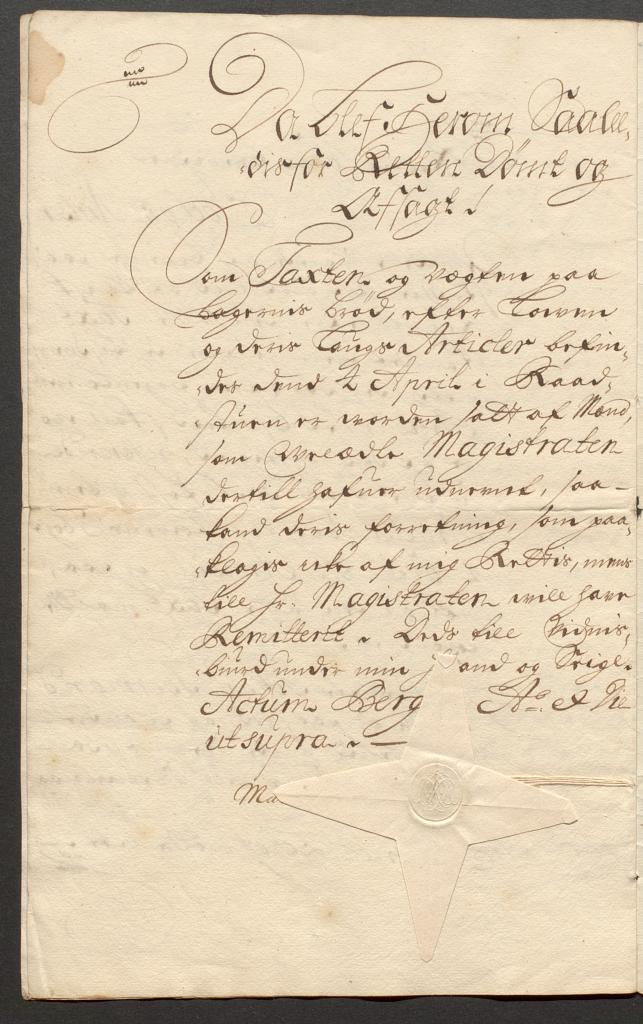 Da blef Herom Saalee,
dis for Retten Dømt og
Afsagt!
Som Taxten og vægten paa
bagernis brød, efter Lowen
og deris Laugs Articler befin,
des dend 2 April i Raad,
stuen er worden satt af Mænd,
som Velædle Magistraten
dertill hafuer udnevnt, saa
kand deris forretning, som paa,
klagis icke af mig Rettis, mens
till hr. Magistraten will have
Remitterit. Dets till Vidnis,
burd under min Haand og Seigl.
Actum Berg Ao. et Die
ut supra. —
Ma